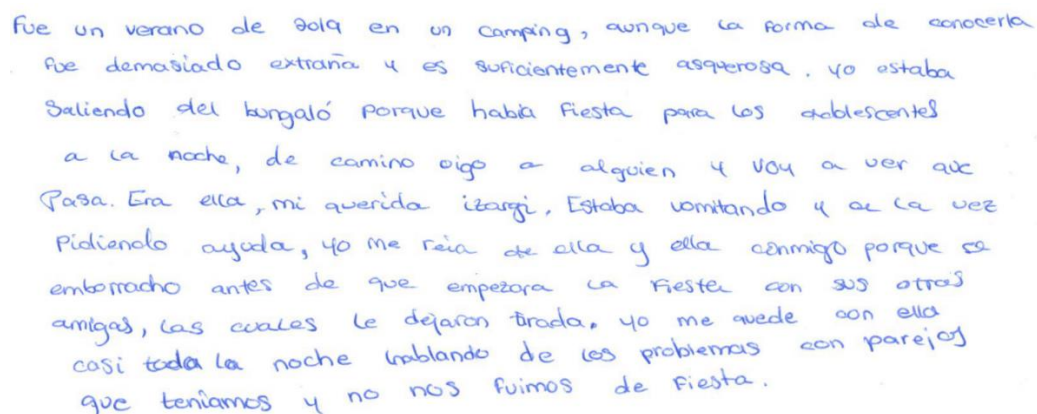 Fue un verano de 2019 en un camping, aunque la forma de conocerla
fue demasiado extraña y es suficientemente asquerosa. yo estaba
Saliendo del bungaló porque había fiesta para los adolescentes
a la noche, de camino oigo a alguien y voy a ver que
Pasa. Era ella, mi querida izargi. Estaba vomitando y a la vez
Pidiendo ayuda, yo me reia de ella y ella conmigo porque se
emborracho antes de que empezara la fiesta con sus otras
amigas, las cuales le dejaron tirada. yo me quede con ella
casi toda la noche hablando de los problemas con parejas
que teníamos y no nos fuimos de fiesta.